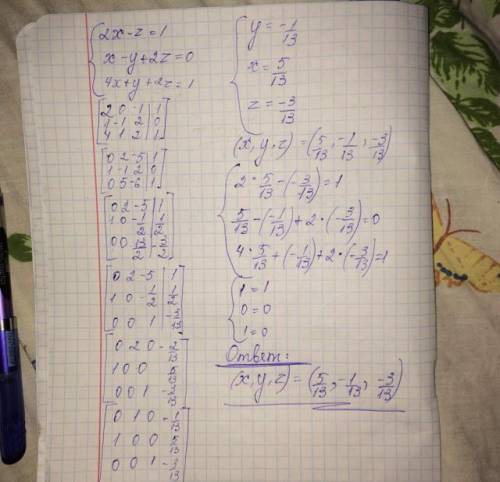 2x-z=1
x-y+2z=0
4x+y+2z=1
2 0 -1 | 1
1 -1 2 | 0
4 1 2 | 1
0 2 -5 | 1
1 -1 2 | 0
0 5 -6 | 1
0 2 -5 | 1
0 2 -5 | 1
0 0 1
0 2 0
1 0 0
0 0 1
0 1 0 -1/13
1 0 0 5/13
0 0 1 -3/13
y = -1/13
x = 5/13
z = -3/13
(x,y,z) = (5/13, -1/13, -3/13)
2 · 5/13 - (-3/13) = 1
5/13 - (-1/13) + 2 · (-3/13) = 0
4 · 5/13 + (-1/13) + 2 · (-3/13) = 1
1 = 1
0 = 0
1 = 0
Ответ:
(x,y,z) = (5/13, -1/13, -3/13)